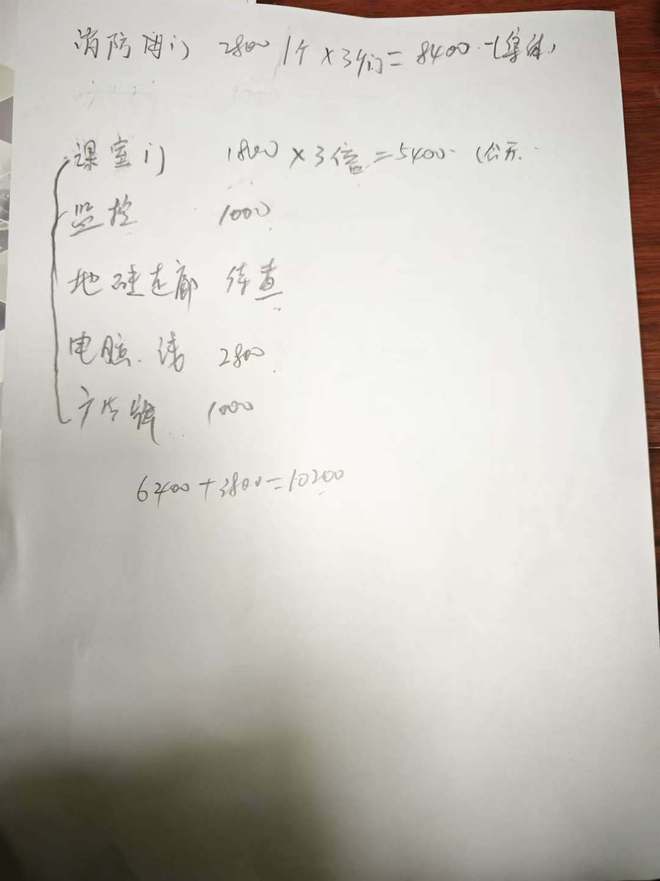 消防用门 2800 1个 × 3个门 = 8400 (集体)
课室门 1800 × 3倍 = 5400 (公开
监控 1000
地 走廊 待查
电脑 线 2800
广告牌 1000
6400 + 3800 = 10200